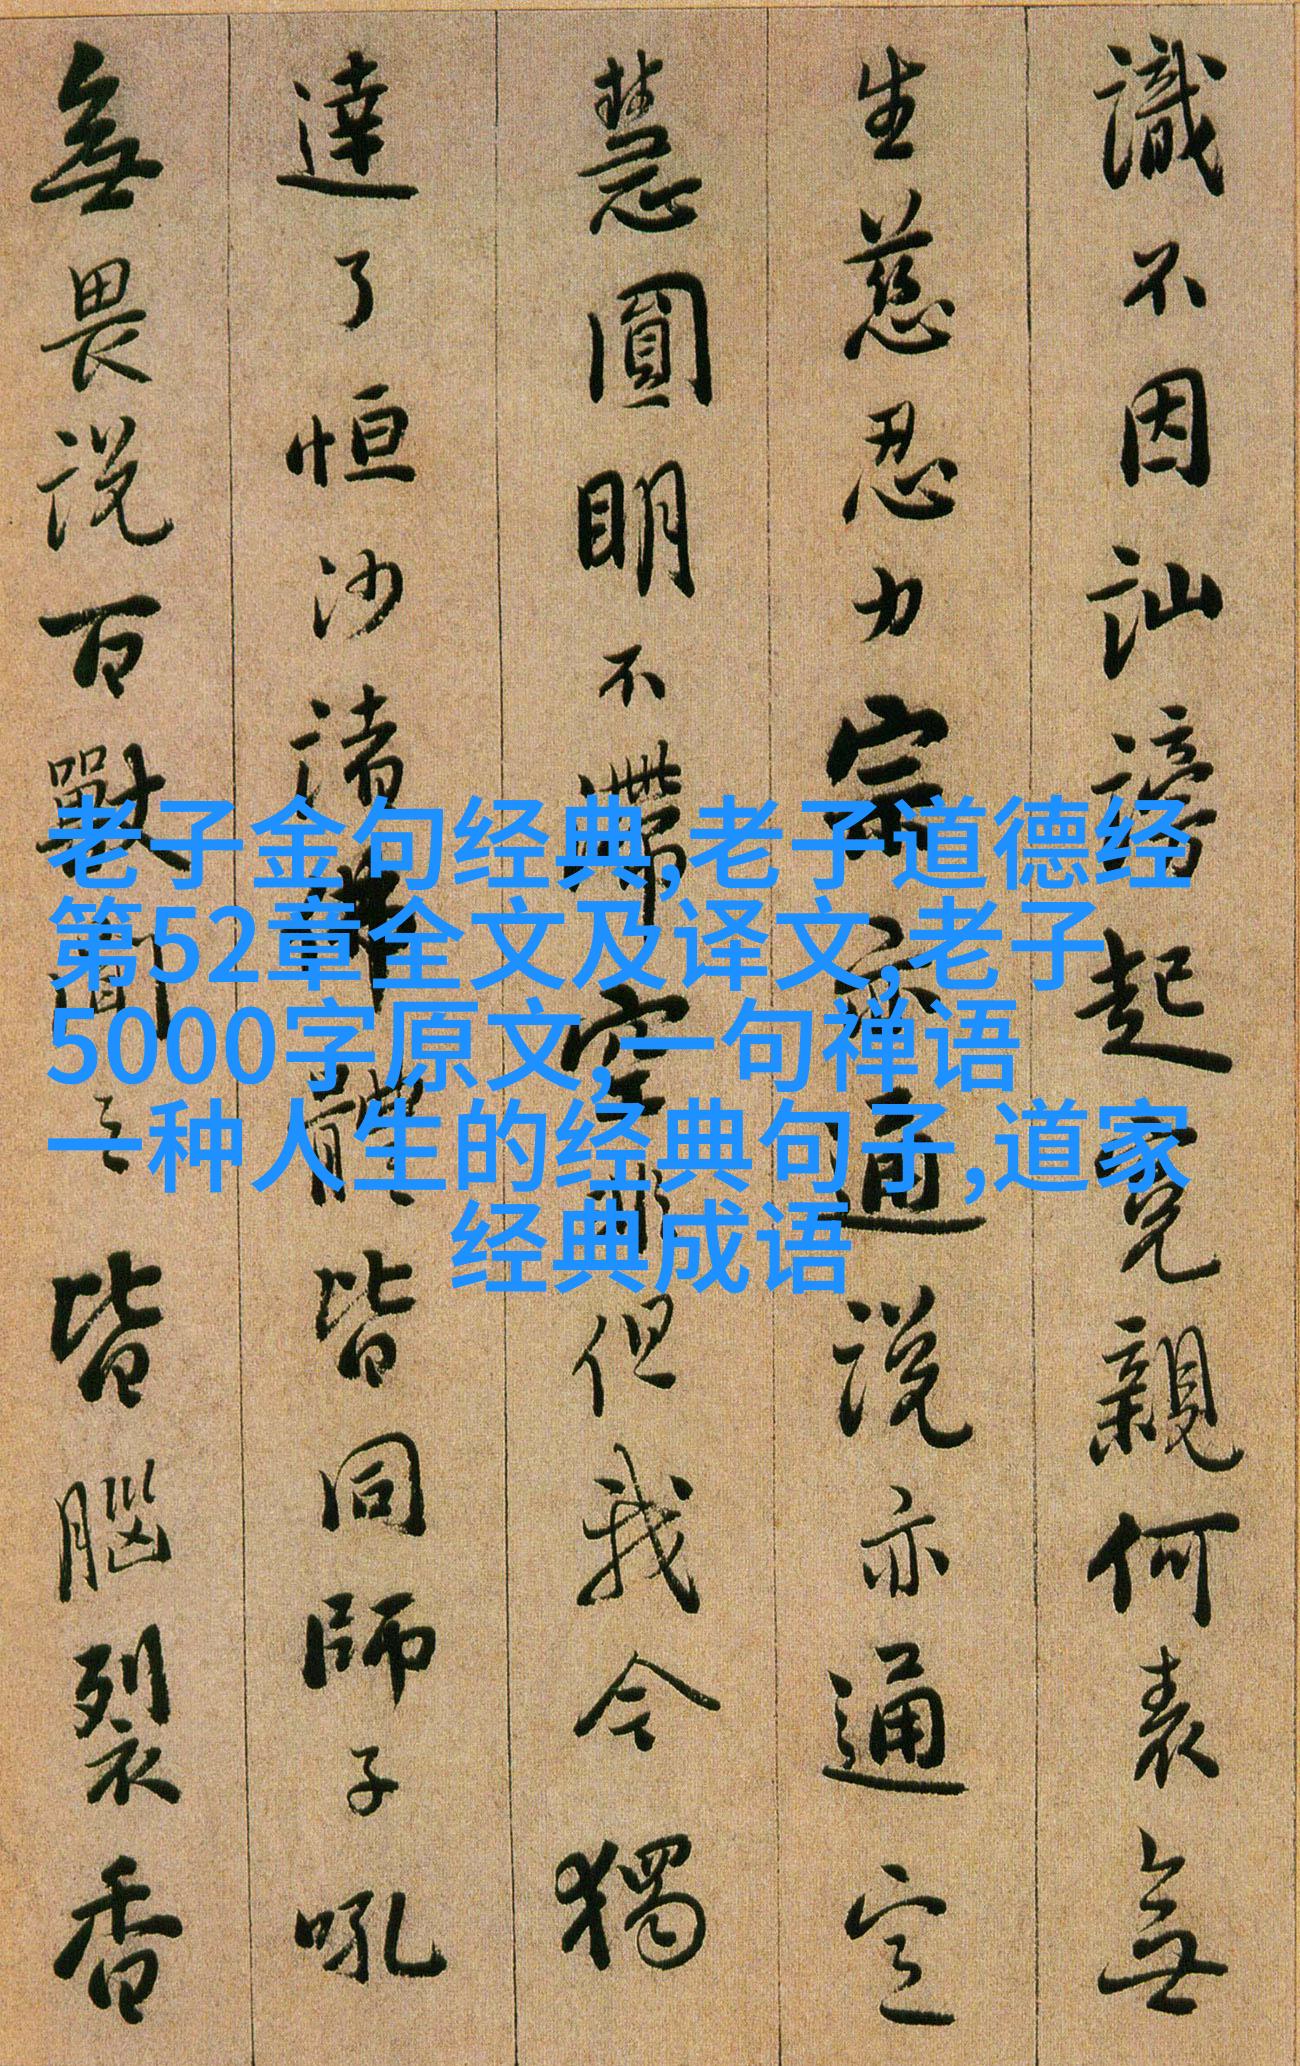 識不因訕謗起寃親何表無
生慈忍力宗亦通說亦通定
慧圓明不滯空非但我今獨
達了恒沙諸佛體皆同師子吼
無畏說百獸聞之皆腦裂香
老子金句经典,老子道德经
第52章全文及译文,老子
5000字原文,一句禅语
一种人生的经典句子,道家
经典成语